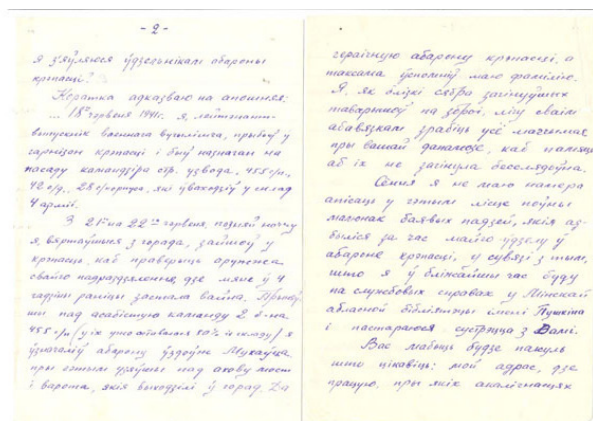 - 2 -
я з'яўляюся ўдзельнікам абароны
крэпасці?
Коратка адказваю на апошняе:
... 18го чэрвеня 1941г. я, лейтэнант-
выпускнік военнага вучылішча, прыбыў у
гарнізон крэпасці і быў назначан на
пасаду камандзіра стр. узвода, 455 с/п,
42 с/д, 28 с/корпуса, які ўваходзіў у склад
4 арміі.
З 21го на 22ое чэрвеня, позняй ноччу
я, вяртаўшыся з горада, зайшоў у
крэпасць, каб праверыць аружжа
свайго надраздзялення, дзе мяне ў 4
гадзіны раніцы застала вайна. Прыняў-
шы над асабістую каманду 2 б-на
455 с/п (у іх ужо оставался 50% із складу) я
ўзначаліў абарону ўздоўж Мухаўца
пры гэтым узяўшы над ахову мост
і варота, якія выходзілі ў горад. Да
гераічную абарону крэпасці, а
таксама ўспомніў маю фамілію.
Я, як блізкі сябра загінуўшых
таварышоў па зброі, лічу сваім
абавязкам зрабіць усё магчымае
пры вашай дапамозе, каб памяць
аб іх не загінула бесследоўна.
Сёння я не маю намера
апісаць у гэтым лісце поўны
малюнак баявых падзей, якія ад-
быліся за час майго ўдзелу ў
абароне крэпасці, у сувязі з тым,
што я ў бліжэйшы час буду
на службовых справах у Мінскай
абласной бібліятэцы імені Пушкіна
і пастараюся сустрэцца з Вамі.
Вас мабыць будзе пакуль
што цікавіць: мой адрас, дзе
працую, пры якіх акалічнасцях